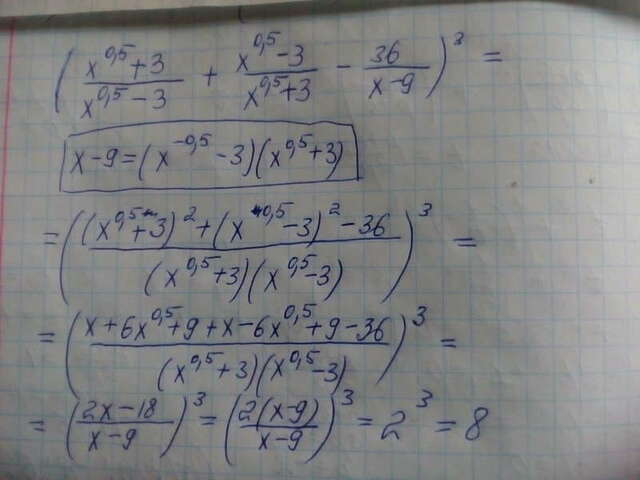 (x^0,5+3 / x^0,5−3 + x^0,5−3 / x^0,5+3 − 36 / x−9)^3 =
x−9=(x^−0,5−3)(x^0,5+3)
=((x^0,5+3)^2+(x^0,5−3)^2−36 / (x^0,5+3)(x^0,5−3))^3 =
=(x+6x^0,5+9+x−6x^0,5+9−36 / (x^0,5+3)(x^0,5−3))^3 =
=(2x−18 / x−9)^3=(2(x−9) / x−9)^3=2^3=8